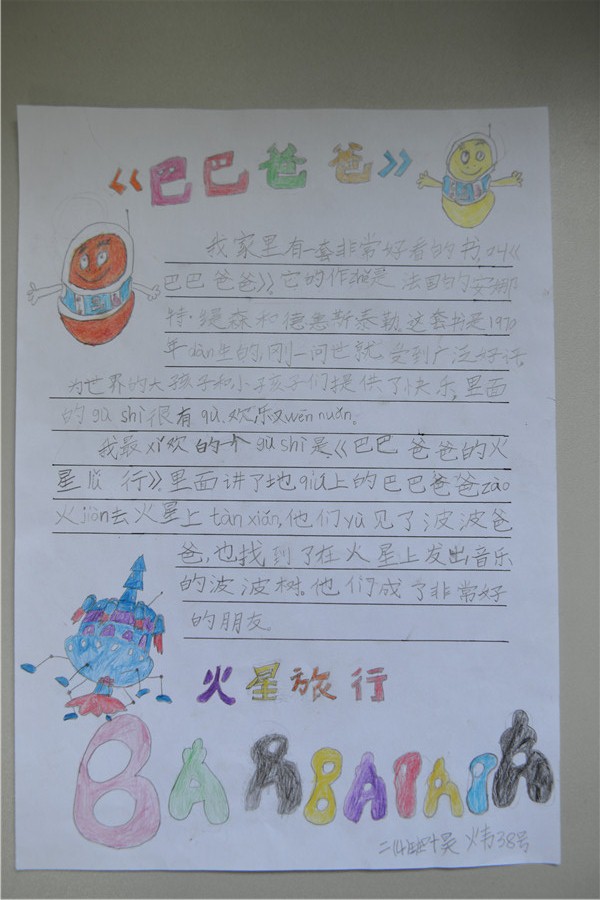 《巴巴爸爸》
我家里有一套非常好看的书叫《
巴巴爸爸》。它的作者是法国的安娜
特·缇森和德鲁斯泰勒。这套书是1970
年dàn生的,刚一问世就受到广泛好评
为世界的大孩子和小孩子们提供了快乐,里面
的gù shi很有qù.欢乐又wēn nuǎn。
我最xǐ欢的一个gù shi是《巴巴爸爸的火
星lǚ行》,里面讲了地qiú上的巴巴爸爸zào
火jiàn去火星上tàn xiǎn,他们yù见了波波爸
爸,也找到了在火星上发出音乐
的波波树。他们成了非常好
的朋友。
火星旅行
BARBAPAPA
38号